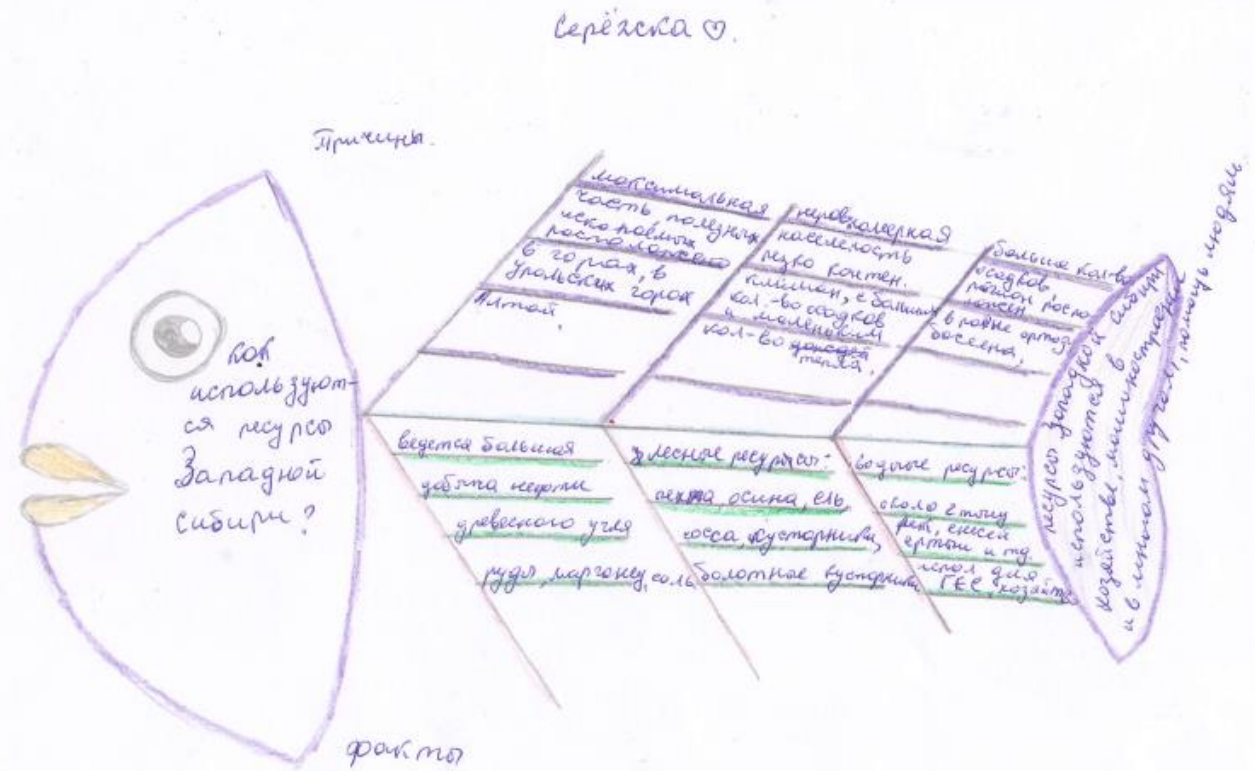 Серёжка ♡.
Причины.
как
используют-
ся ресурсы
Западной
сибири?
максимальная
часть полезных
ископаемых
расположено
в горах, в
Уральских горах
Алтай.
неравномерная
населеность
резко контен.
климан, с больши
кол.-во осадков
и маленьким
кол-во
тепла.
больше кол-во
осадков
регион распо
ложен
в
бассена,
ведется большая
добыча нефти
древесного угля
руды, марганец, соль
лесные ресурсы:
пехта, осина, ель,
сосса, кустарники,
болотные кустарники
водные ресурсы:
около 2 тыщ
рек, енисей
ертыш и тд.
испол для
ГЕС, хозяйтв
ресурсы Западной сибири
используются в
хозяйстве, машиностраении
и в многом другом, помощь людям.
факты